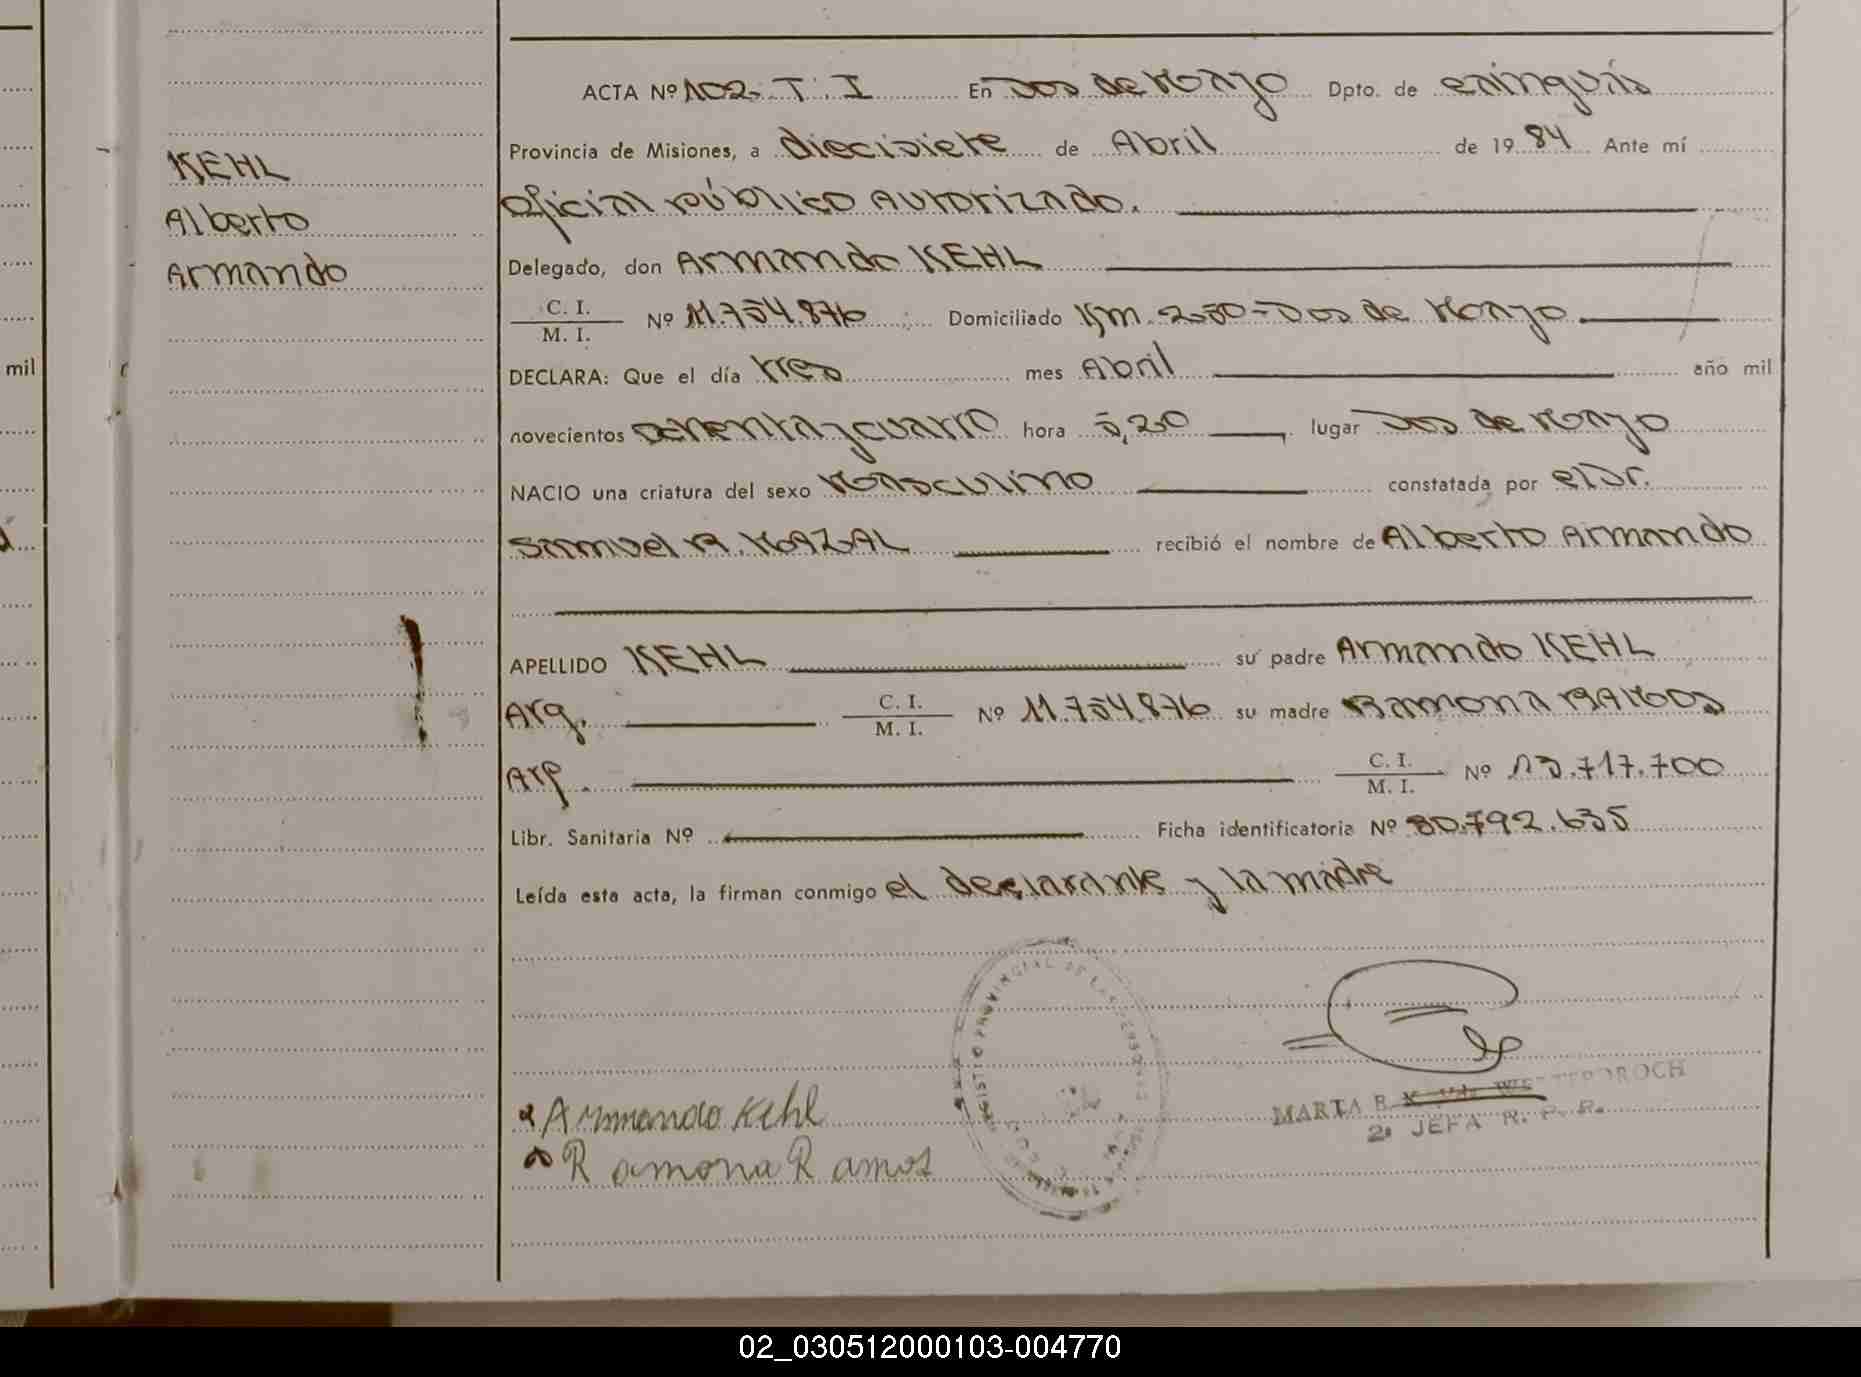 KEHL
Alberto
Armando
mil
ACTA Nº 102. T. I En Dos de Mayo Dpto. de cainguás
Provincia de Misiones, a diecisiete de Abril de 1984 Ante mí
oficial público Autorizado.
Delegado, don Armando KEHL
C. I. / M. I. Nº 11.754.876 Domiciliado Km. 250-Dos de Mayo
DECLARA: Que el día tres mes Abril año mil
novecientos ochenta y cuatro hora 5,20 lugar Dos de Mayo
NACIO una criatura del sexo Masculino constatada por el Dr.
Samuel A. MAZAL recibió el nombre de Alberto Armando
APELLIDO KEHL su padre Armando KEHL
Arg. C. I. / M. I. Nº 11.754.876 su madre Ramona RAMOS
Arg. C. I. / M. I. Nº 13.717.700
Libr. Sanitaria Nº Ficha identificatoria Nº 30.792.635
Leída esta acta, la firman conmigo el declarante y la madre
REGISTRO PROVINCIAL DE LAS PERSONAS
MARTA B.
2ª JEFA R. P. P.
Armando Kehl
Ramona Ramos
02_030512000103-004770